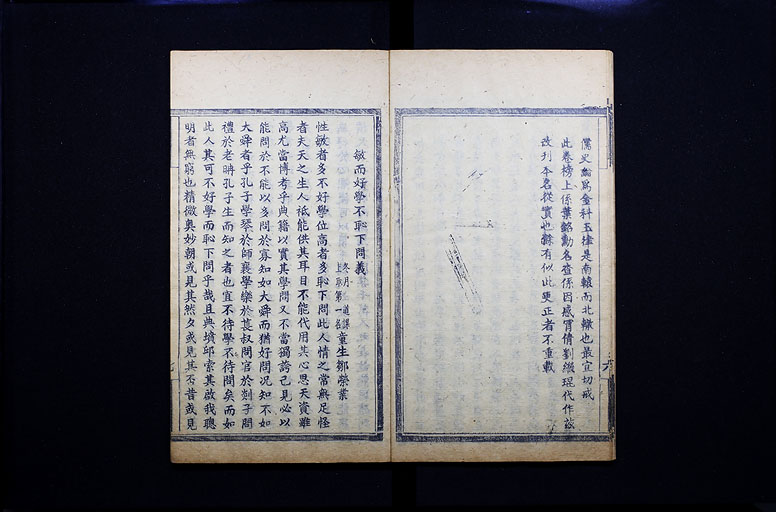 儒又齗爲金科玉律是南轅而北轍也最宜切戒
此卷榜上係葉銘勳名查係因感冒倩劉繼琨代作茲
改刊本名從實也餘有似此更正者不重載
敏而好學不恥下問義
冬月道課
上取第一名童生鄒榮業
性敏者多不好學位高者多恥下問此人情之常無足怪
者夫天之生人祗能供其耳目不能代用其心思天資雖
高尤當博考乎典籍以實其學問又不當獨誇己見必以
能問於不能以多問於寡知如大舜而猶好問况知不如
大舜者乎孔子學琴於師襄學樂於萇叔問官於剡子問
禮於老聃孔子生而知之者也宜不待學不待問矣而如
此人其可不好學而恥下問乎哉且典墳邱索其啟我聰
明者無窮也精微奥妙朝或見其然夕或見其不昔或見